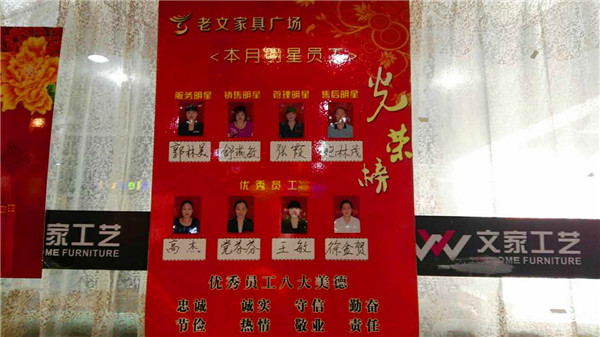 老文家具广场
<本月明星员工>
光荣榜
服务明星 销售明星 管理明星 售后明星
郭林美 张霞
优秀员工
高杰 党春芬 王敏 徐金贺
家工艺 文家工艺
OME FURNITURE OME FURNITURE
优秀员工八大美德
忠诚 诚实 守信 勤奋
节俭 热情 敬业 责任